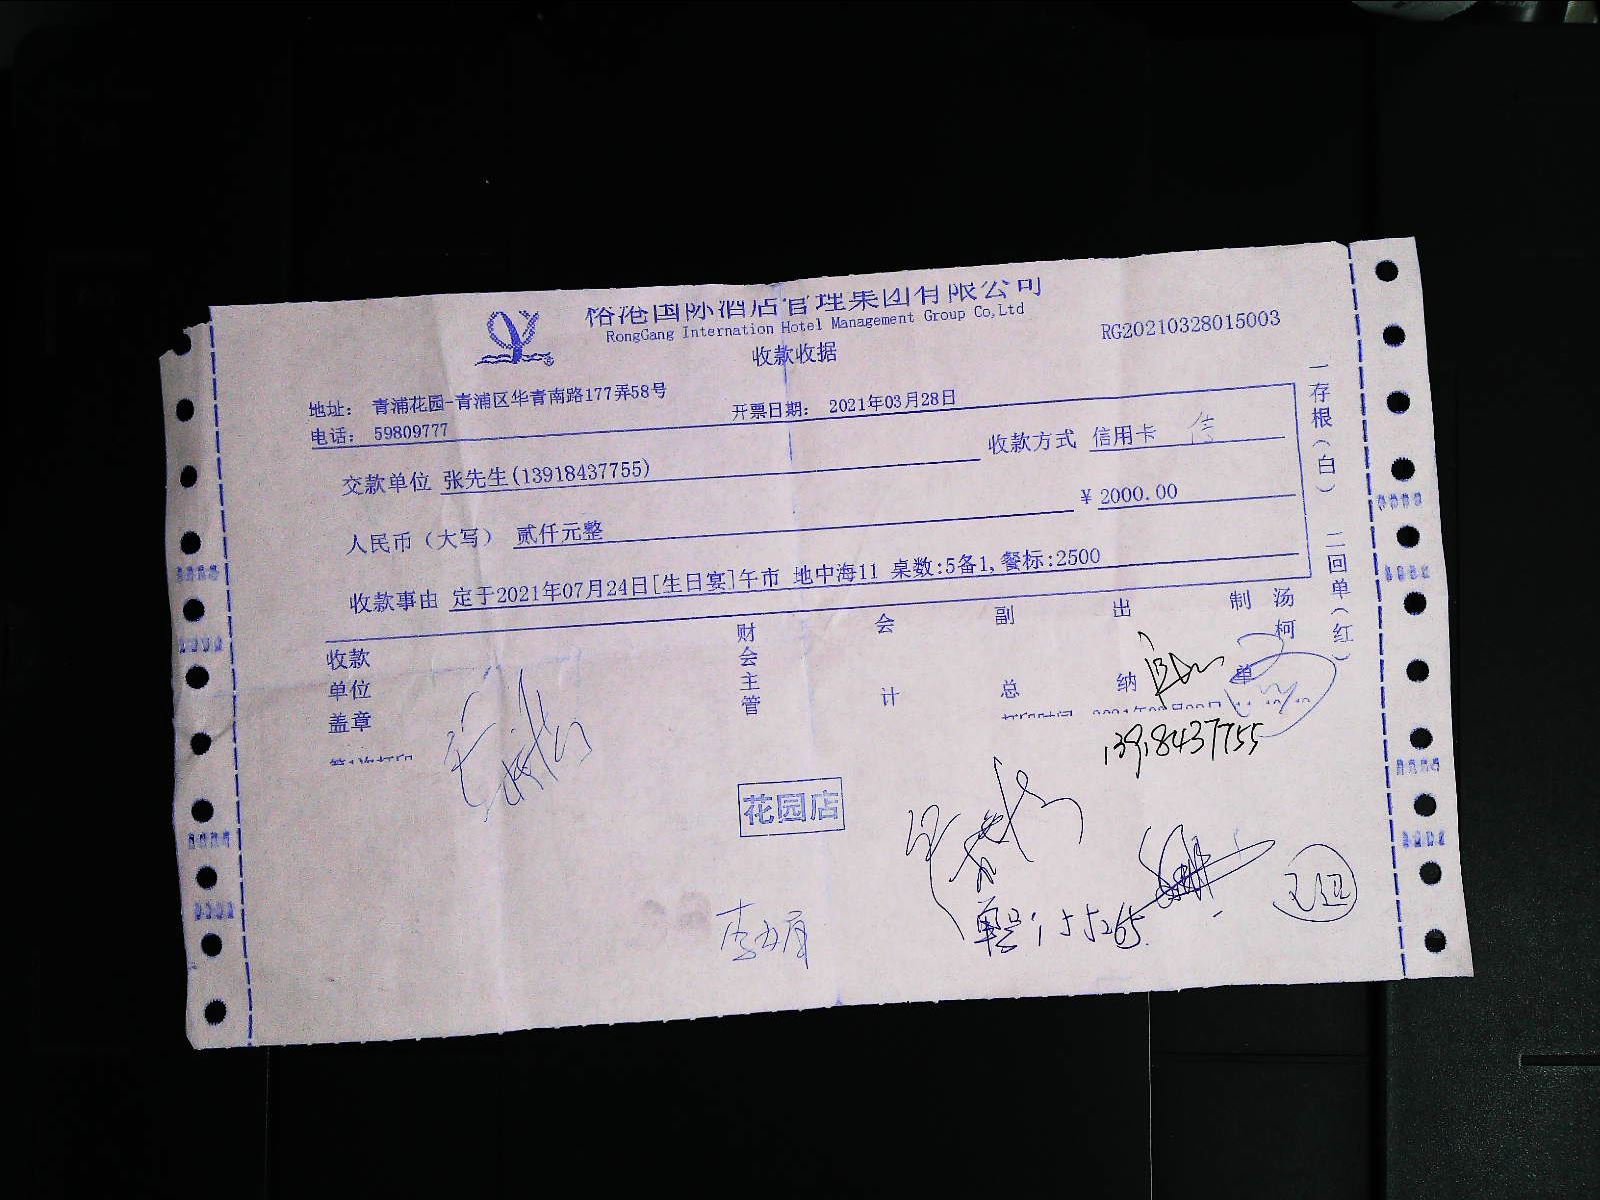 国际酒店管理集团有限公司
RongGang Internation Hotel Management Group Co,Ltd
收款收据
RG20210328015003
地址： 青浦花园-青浦区华青南路177弄58号
电话： 59809777
开票日期： 2021年03月28日
收款方式 信用卡 信
交款单位 张先生(13918437755)
人民币（大写） 贰仟元整
¥ 2000.00
收款事由 定于2021年07月24日[生日宴]午市 地中海11 桌数:5备1,餐标:2500
一存根（白） 二回单（红）
收款单位盖章
财会主管
会计
副总
出纳
制单
汤柯
第1次打印
打印时间
13918437755
花园店